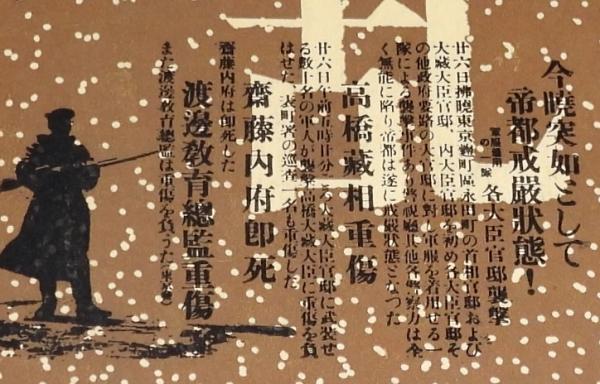 今曉突如として
帝都戒嚴狀態！
軍服着用の一隊 各大臣官邸襲擊
廿六日拂曉東京麴町區永田町の首相官邸および
大藏大臣官邸、內大臣官邸を初め各大臣官邸そ
の他政府要路の大官邸に對し軍服を着用せる一
隊による襲擊事件あり警視廳其他各警察力は全
く無能に陷り帝都は遂に戒嚴狀態となつた
高橋藏相重傷
廿六日午前五時廿分ころ大藏大臣官邸に武裝せ
る數十名の軍人が襲擊高橋大藏大臣に重傷を負
はせた、表町署の巡査一名も重傷した
齋藤內府卽死
齋藤內府は卽死した
渡邊敎育總監重傷
また渡邊敎育總監は重傷を負うた